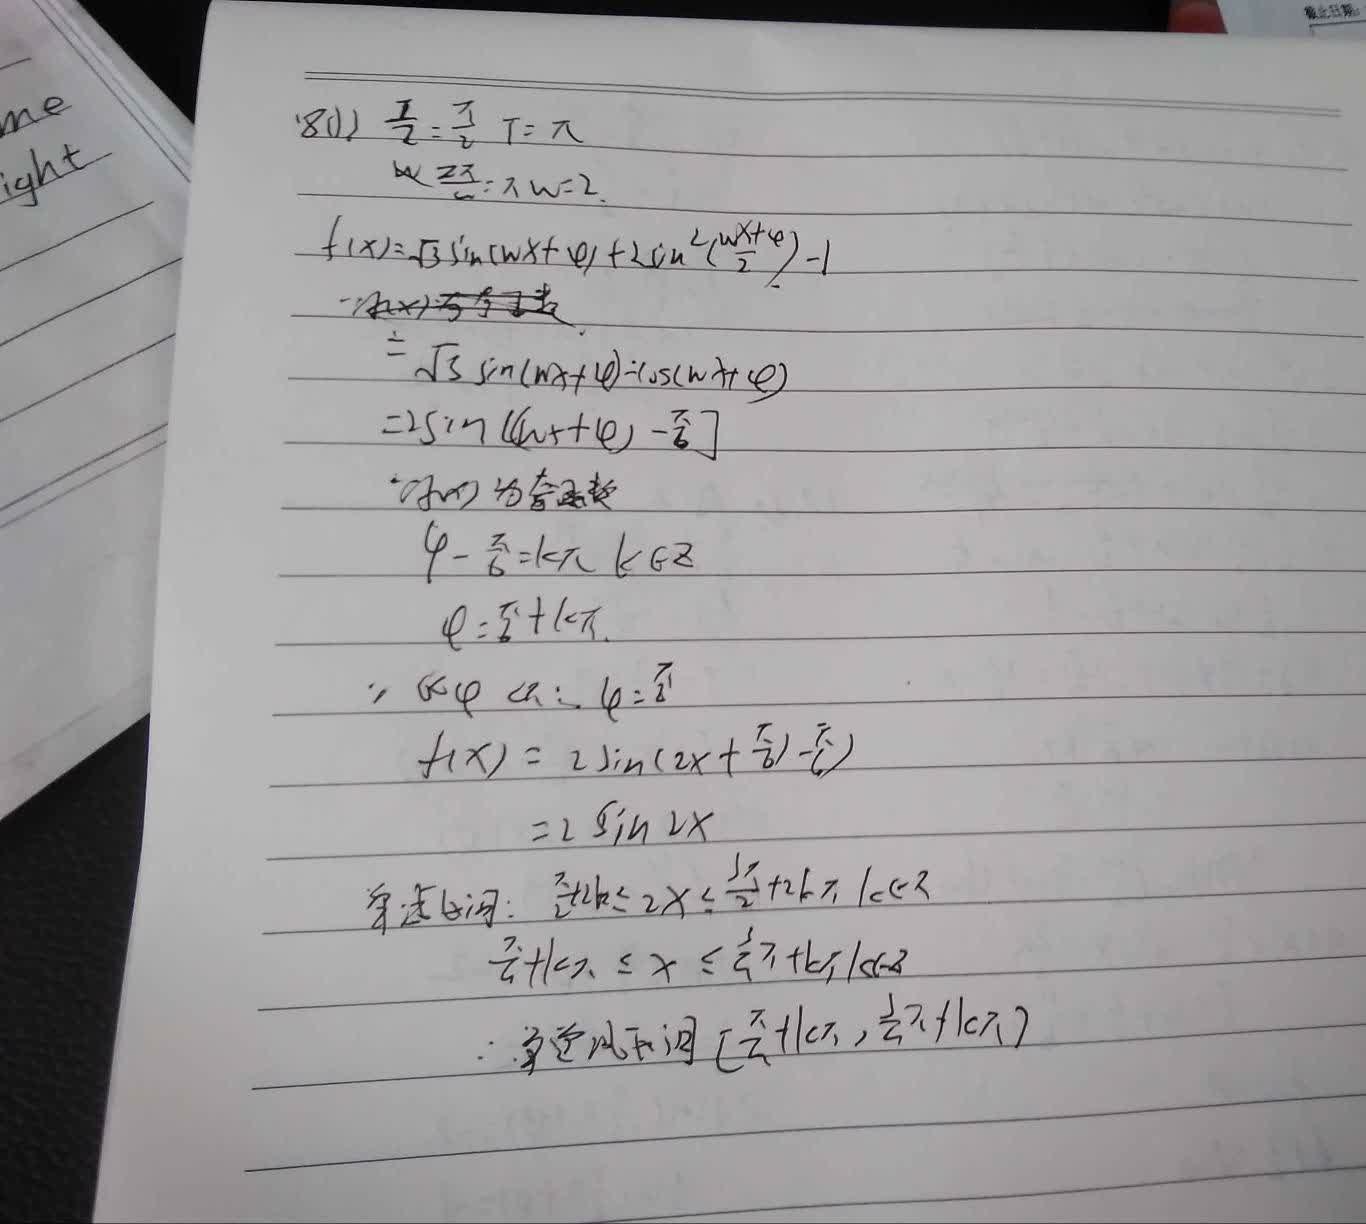 截止日期:
me
ight
18(1) T/2 = π/2 T = π
2π/w = π w = 2.
f(x) = √3 sin(wx+φ) + 2sin²(wx+φ/2) - 1
= √3 sin(wx+φ) - cos(wx+φ)
= 2sin[(wx+φ) - π/6]
∵ f(x) 为奇函数
φ - π/6 = kπ k∈Z
φ = π/6 + kπ.
∵ 0<φ<π ∴ φ = π/6
f(x) = 2sin(2x + π/6) - π/6)
= 2 sin 2x
单减区间: π/2+2k ≤ 2x ≤ 3π/2 + 2kπ k∈Z
π/4 + kπ ≤ x ≤ 3/4π + kπ k∈Z
∴ 单 减区间 [π/4 + kπ, 3/4π + kπ]